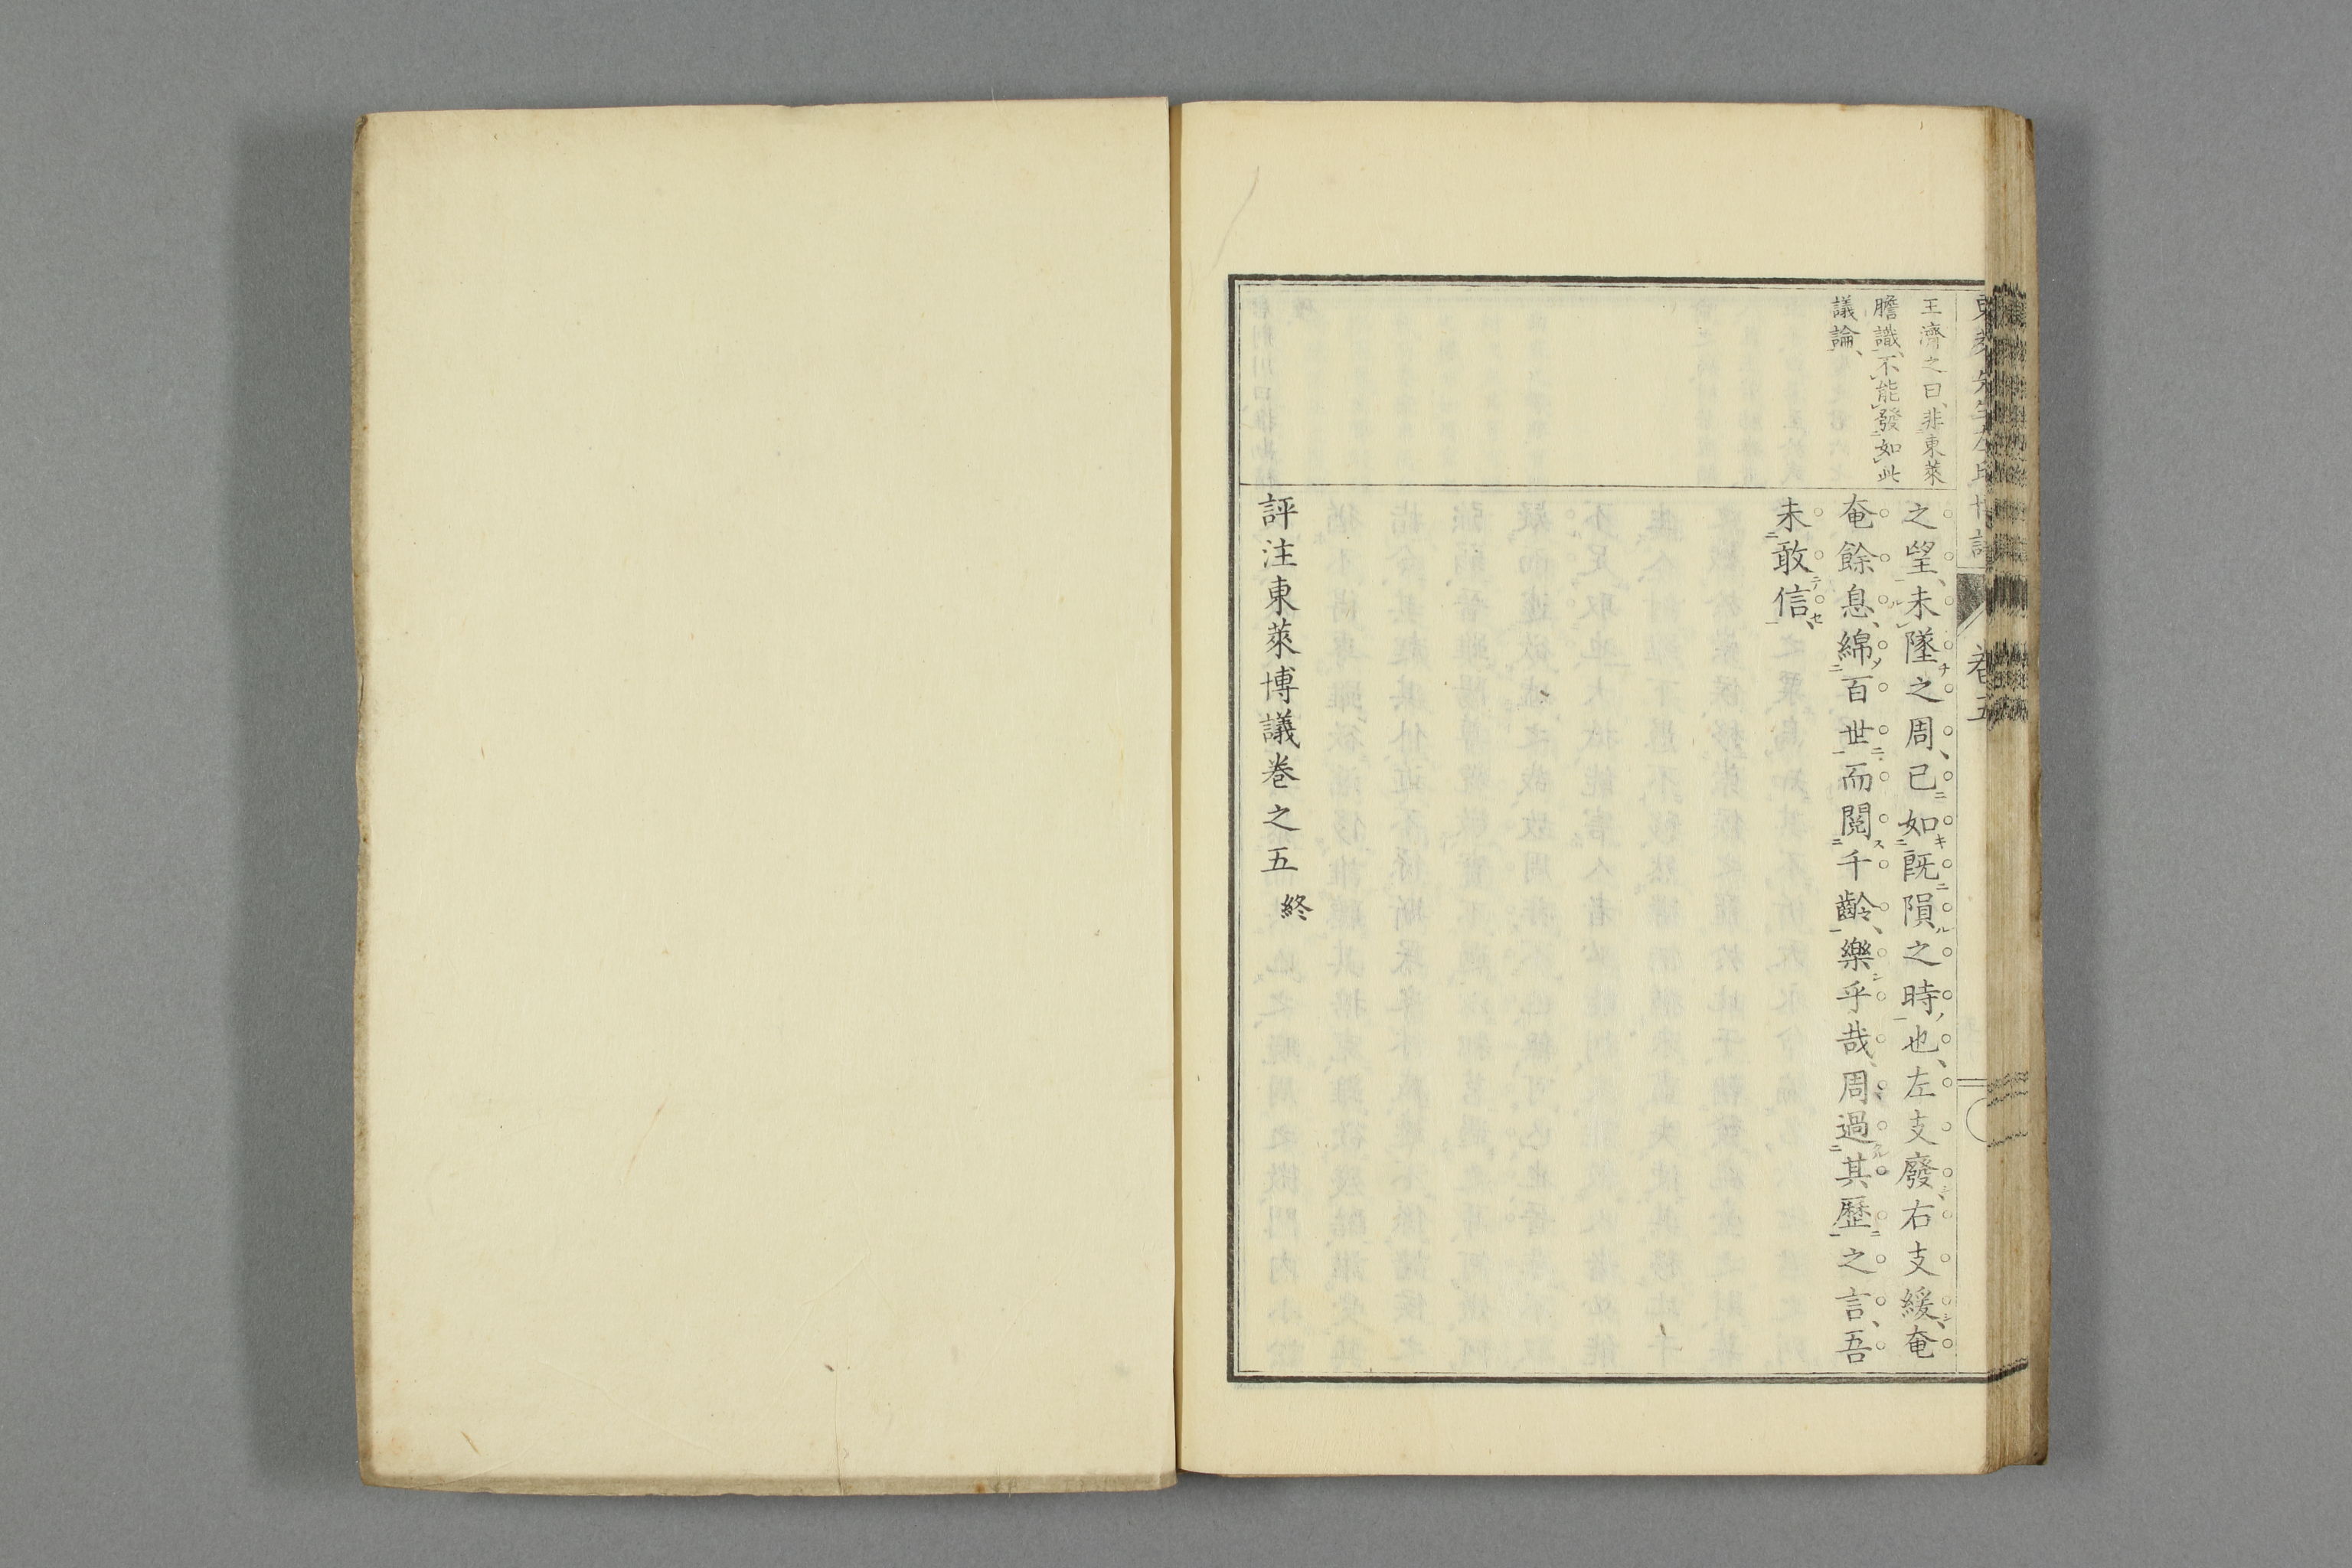 王濟之曰、非東萊
膽識、不能發如此
議論、
之望、未墜之周、已如既隕之時也、左支廢右支緩、奄
奄餘息、綿百世而閱千齡、樂乎哉、周過其歷之言、吾
未敢信、
評注東萊博議卷之五終